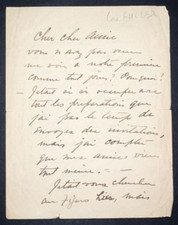 Cher cher Amie
vous n'avez pas venue
me voir à notre première
comme tout jour! Pourquoi?
J'etait si si occupé avec
tout les preparations que
j'ai pas le temps de
envoyer des invitation,
mais j'ai compté
que mes amis vien
tout même. —
J'etait vous chercher
mais